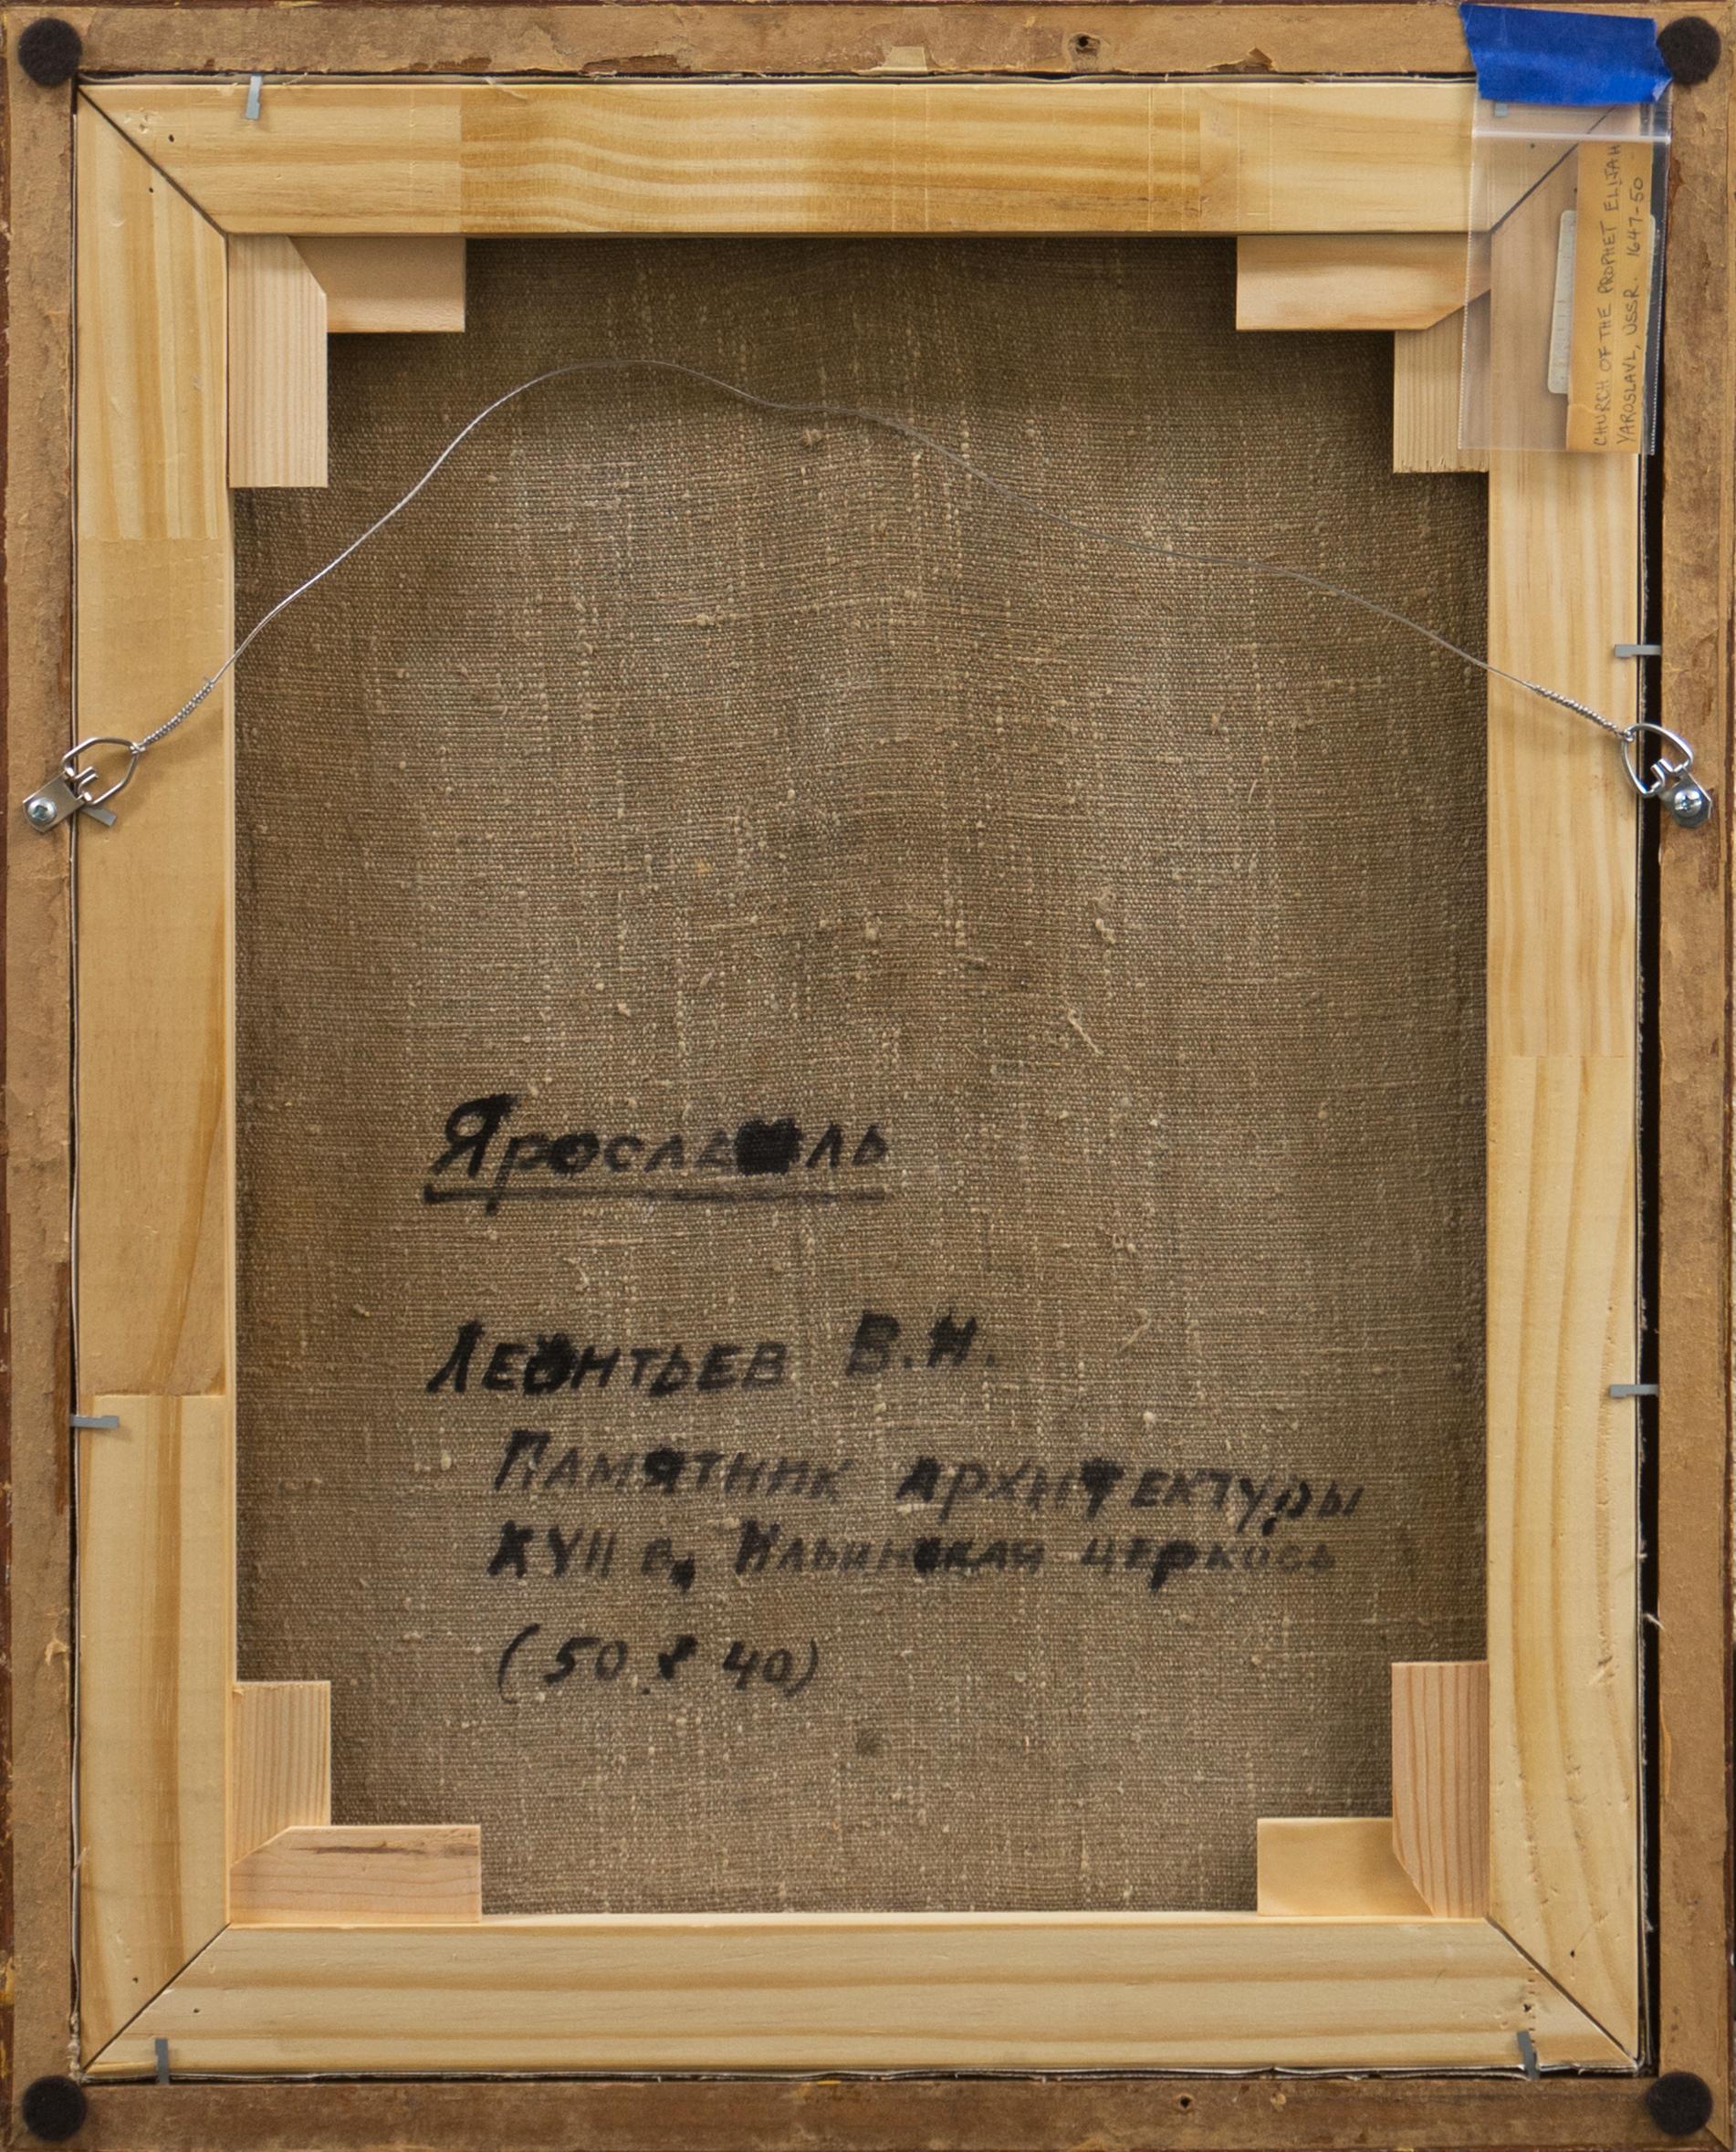 Ярославль
ЛЕОНТЬЕВ В.Н.
ПАМЯТНИК АРХИТЕКТУРЫ
XVII в, ИЛЬИНСКАЯ ЦЕРКОВЬ
(50 x 40)
CHURCH OF THE PROPHET ELIJAH
YAROSLAVL, USSR. 1647-50